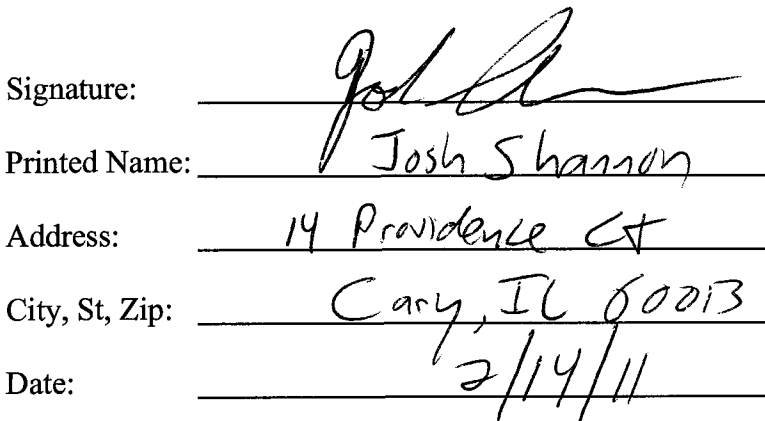 Signature:
Printed Name: Josh Shannon
Address: 14 Providence Ct
City, St, Zip: Cary, IL 60013
Date: 2/14/11